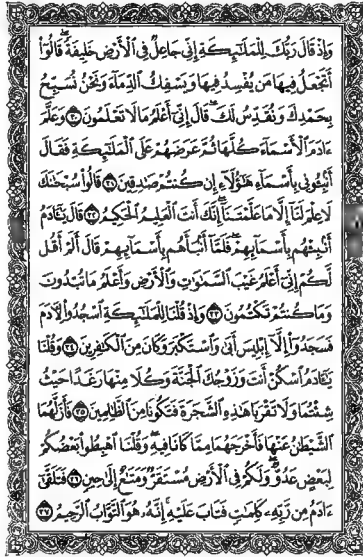 وَإِذْ قَالَ رَبُّكَ لِلْمَلَٰٓئِكَةِ إِنِّى جَاعِلٌ فِى ٱلْأَرْضِ خَلِيفَةً قَالُوٓا۟
أَتَجْعَلُ فِيهَا مَن يُفْسِدُ فِيهَا وَيَسْفِكُ ٱلدِّمَآءَ وَنَحْنُ نُسَبِّحُ
بِحَمْدِكَ وَنُقَدِّسُ لَكَ قَالَ إِنِّىٓ أَعْلَمُ مَا لَا تَعْلَمُونَ ٣٠ وَعَلَّمَ
ءَادَمَ ٱلْأَسْمَآءَ كُلَّهَا ثُمَّ عَرَضَهُمْ عَلَى ٱلْمَلَٰٓئِكَةِ فَقَالَ
أَنۢبِـُٔونِى بِأَسْمَآءِ هَٰٓؤُلَآءِ إِن كُنتُمْ صَٰدِقِينَ ٣١ قَالُوا۟ سُبْحَٰنَكَ
لَا عِلْمَ لَنَآ إِلَّا مَا عَلَّمْتَنَآ إِنَّكَ أَنتَ ٱلْعَلِيمُ ٱلْحَكِيمُ ٣٢ قَالَ يَٰٓـَٔادَمُ
أَنۢبِئْهُم بِأَسْمَآئِهِمْ فَلَمَّآ أَنۢبَأَهُم بِأَسْمَآئِهِمْ قَالَ أَلَمْ أَقُل
لَّكُمْ إِنِّىٓ أَعْلَمُ غَيْبَ ٱلسَّمَٰوَٰتِ وَٱلْأَرْضِ وَأَعْلَمُ مَا تُبْدُونَ
وَمَا كُنتُمْ تَكْتُمُونَ ٣٣ وَإِذْ قُلْنَا لِلْمَلَٰٓئِكَةِ ٱسْجُدُوا۟ لِـَٔادَمَ
فَسَجَدُوٓا۟ إِلَّآ إِبْلِيسَ أَبَىٰ وَٱسْتَكْبَرَ وَكَانَ مِنَ ٱلْكَٰفِرِينَ ٣٤ وَقُلْنَا
يَٰٓـَٔادَمُ ٱسْكُنْ أَنتَ وَزَوْجُكَ ٱلْجَنَّةَ وَكُلَا مِنْهَا رَغَدًا حَيْثُ
شِئْتُمَا وَلَا تَقْرَبَا هَٰذِهِ ٱلشَّجَرَةَ فَتَكُونَا مِنَ ٱلظَّٰلِمِينَ ٣٥ فَأَزَلَّهُمَا
ٱلشَّيْطَٰنُ عَنْهَا فَأَخْرَجَهُمَا مِمَّا كَانَا فِيهِ وَقُلْنَا ٱهْبِطُوا۟ بَعْضُكُمْ
لِبَعْضٍ عَدُوٌّ وَلَكُمْ فِى ٱلْأَرْضِ مُسْتَقَرٌّ وَمَتَٰعٌ إِلَىٰ حِينٍ ٣٦ فَتَلَقَّىٰٓ
ءَادَمُ مِن رَّبِّهِۦ كَلِمَٰتٍ فَتَابَ عَلَيْهِ إِنَّهُۥ هُوَ ٱلتَّوَّابُ ٱلرَّحِيمُ ٣٧